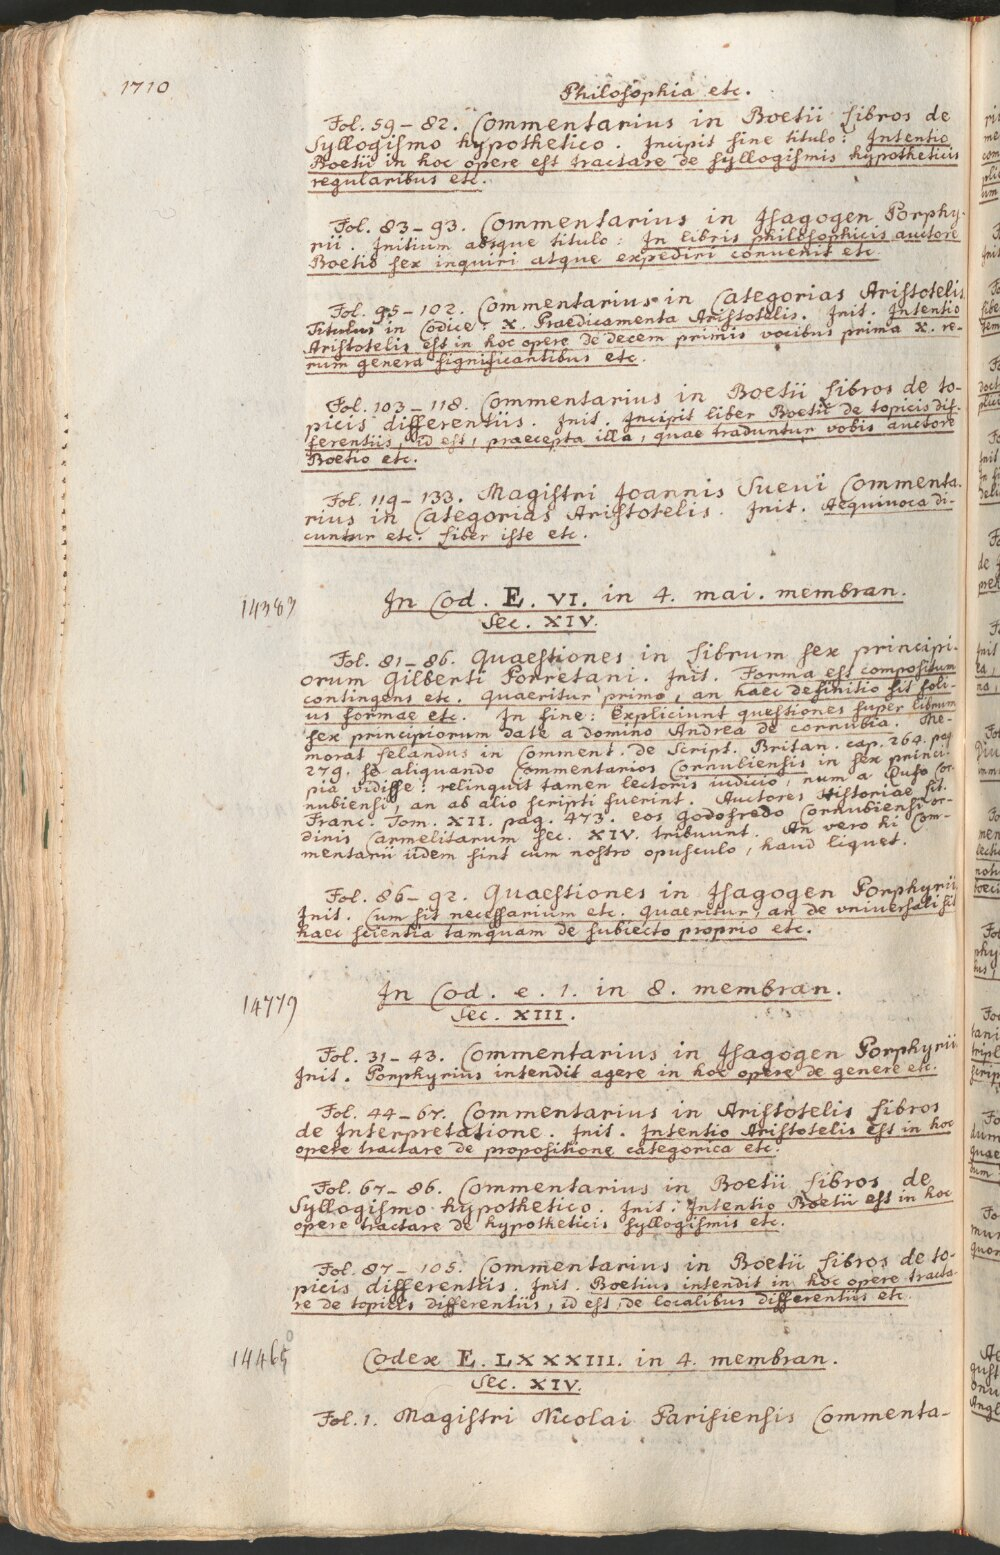 1710
Philosophia etc.
Fol. 59–82. Commentarius in Boetii libros de
Syllogismo hypothetico. Incipit sine titulo: Intentio
Boetii in hoc opere est tractare de syllogismis hypotheticis
regularibus etc.
Fol. 83–93. Commentarius in Isagogen Porphy-
rii. Initium absque titulo: In libris philosophicis auctore
Boetio sex inquiri atque expediri convenit etc.
Fol. 95–102. Commentarius in Categorias Aristotelis
Titulus in Codice: X. Praedicamenta Aristotelis. Init. Intentio
Aristotelis est in hoc opere de decem primis vocibus prima X. re-
rum genera significantibus etc.
Fol. 103–118. Commentarius in Boetii libros de to-
picis differentiis. Init. Incipit liber Boetii de topicis dif-
ferentiis, id est, praecepta illa, quae traduntur vobis auctore
Boetio etc.
Fol. 119–133. Magistri Joannis Suevi Commenta-
rius in Categorias Aristotelis. Init. Aequivoca di-
cuntur etc. Liber iste etc.
14383
In Cod. E. VI. in 4. mai. membran.
Sec. XIV.
Fol. 81–86. Quaestiones in librum sex principi-
orum Gilberti Porretani. Init. Forma est compositum
contingens etc. quaeritur primo, an haec definitio sit soli-
us formae etc. In fine: Expliciunt questiones super librum
sex principiorum date a domino Andrea de cornubia. Me-
morat Lelandus in Comment. de Script. Britan. cap. 264. pag
279. se aliquando Commentarios Cornubiensis in sex princi-
pia vidisse: relinquit tamen lectoris iudicio, num a Cor-
nubiensi, an ab alio scripti fuerint. Auctores Historiae lit.
Franc. Tom. XII. pag. 473. eos Godofredo Cornubiensi or-
dinis Carmelitarum sec. XIV. tribuunt. An vero hi Com-
mentarii iidem sint cum nostro opusculo, haud liquet.
Fol. 86–92. Quaestiones in Isagogen Porphyrii
Init. Cum sit necessarium etc. quaeritur, an de vniversali sit
haec scientia tamquam de subiecto proprio etc.
14779
In Cod. e. 1. in 8. membran.
Sec. XIII.
Fol. 31–43. Commentarius in Isagogen Porphyrii
Init. Porphyrius intendit agere in hoc opere de genere etc.
Fol. 44–67. Commentarius in Aristotelis libros
de Interpretatione. Init. Intentio Aristotelis est in hoc
opere tractare de propositione categorica etc.
Fol. 67–86. Commentarius in Boetii libros de
Syllogismo hypothetico. Init. Intentio Boetii est in hoc
opere tractare de hypotheticis syllogismis etc.
Fol. 87–105. Commentarius in Boetii libros de to-
picis differentiis. Init. Boetius intendit in hoc opere tracta-
re de topicis differentiis, id est, de localibus differentiis etc.
14465
Codex E. LXXXIII. in 4. membran.
Sec. XIV.
Fol. 1. Magistri Nicolai Parisiensis Commenta-